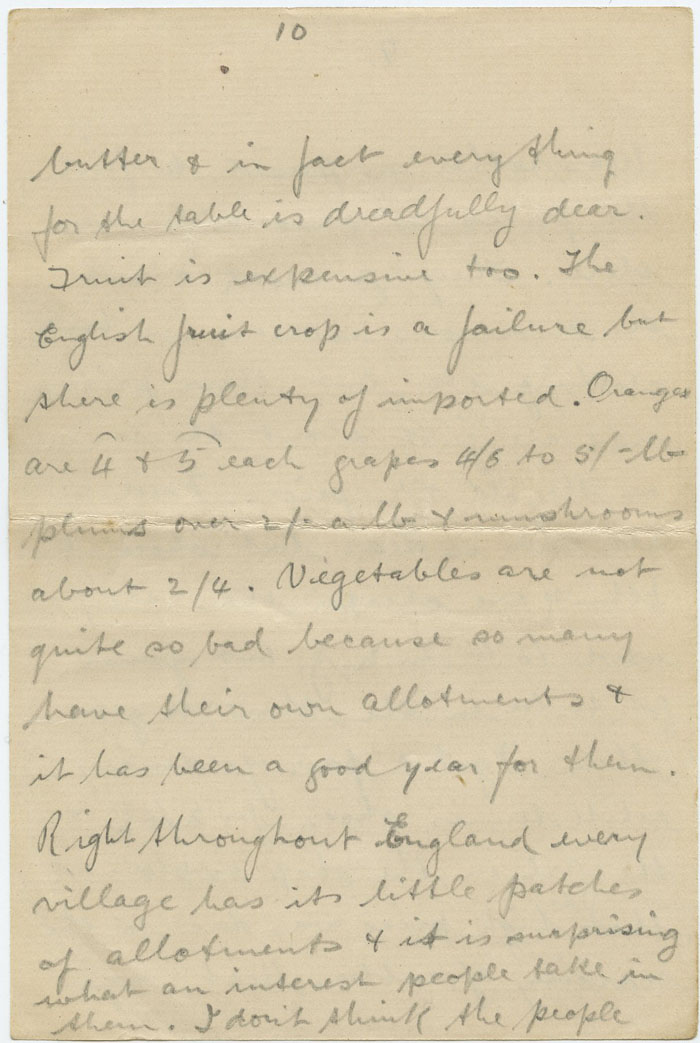 10
butter & in fact everything
for the table is dreadfully dear.
Fruit is expensive too. The
English fruit crop is a failure but
there is plenty of imported. Oranges
are 4 & 5 each grapes 4/6 to 5/- lb
plums over 2/- a lb & mushrooms
about 2/4. Vegetables are not
quite so bad because so many
have their own allotments &
it has been a good year for them.
Right throughout England every
village has its little patches
of allotments & it is surprising
what an interest people take in
them. I don't think the people